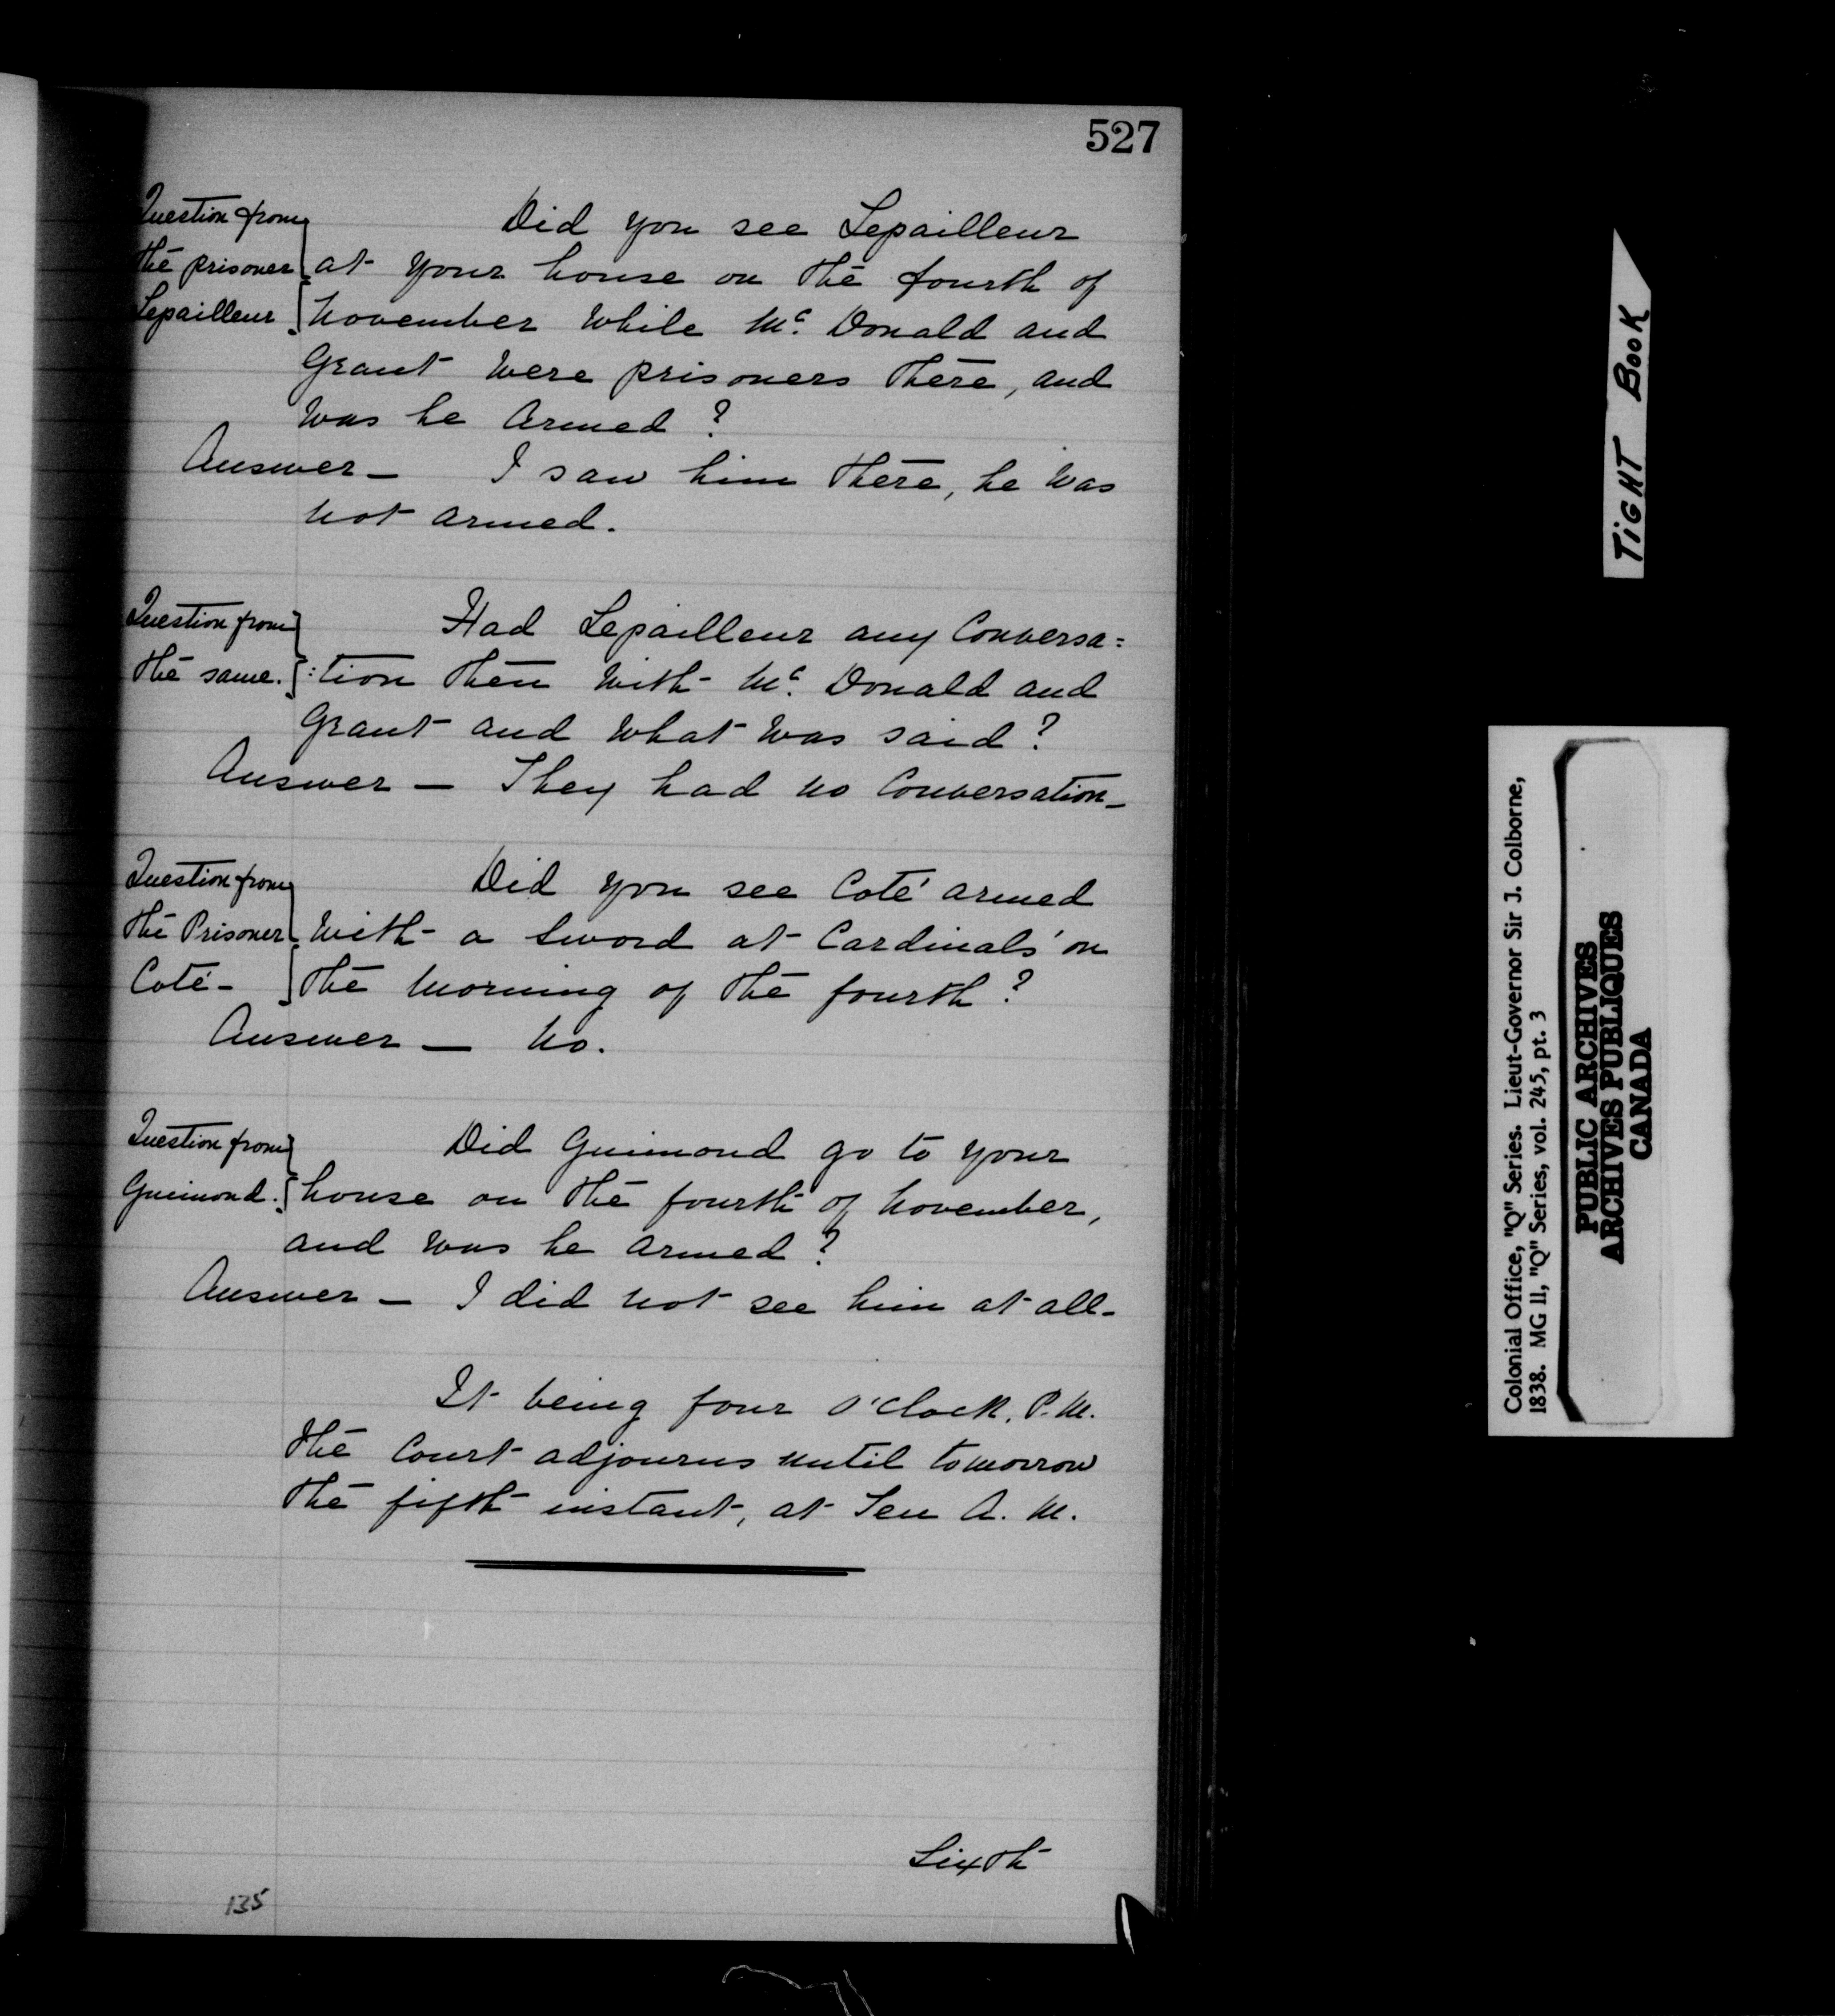 527
Question from
the prisoner
Lepailleur
Did you see Lepailleur
at your house on the fourth of
November while Mc. Donald and
Grant were prisoners there, and
was he armed?
Answer — I saw him there, he was
not armed.
Question from
the same.
Had Lepailleur any Conversa=
:tion then with Mc. Donald and
Grant and what was said?
Answer — They had no Conversation —
Question from
the Prisoner
Coté —
Did you see Coté armed
with a sword at Cardinals' on
the morning of the fourth?
Answer — No.
Question from
Guimond.
Did Guimond go to your
house on the fourth of November,
and was he armed?
Answer — I did not see him at all —
It being four o'clock, P.M.
the Court adjourns until tomorrow
the fifth instant, at Ten A.M.
Sixth
135
TIGHT BOOK
Colonial Office, "Q" Series. Lieut-Governor Sir J. Colborne,
1838. MG 11, "Q" Series, vol. 245, pt. 3
PUBLIC ARCHIVES
ARCHIVES PUBLIQUES
CANADA